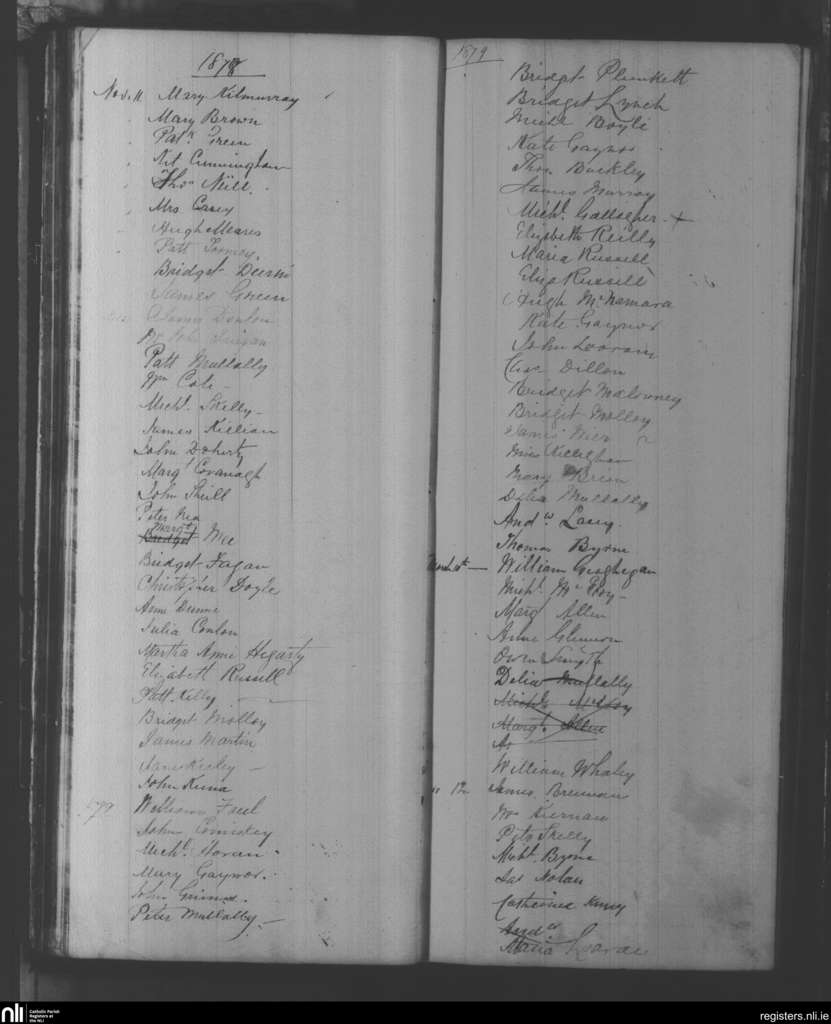 1878
Nov. 11 Mary Kilmurray
Mary Brown
Patk Green
Kit Cunningham
Thos Neill.
Mrs Casey
Hugh Meares
Patt Toomey.
Bridget Deerin
James Green
Donlon
John
Patt Mullally
Wm Cole
Michl. Skelly
James Killian
John Doherty
Margt Covanagh
John Skill
Peter Nea
Margt
Bridget Nee
Bridget Fagan
Christopher Doyle
Anne Dunne
Julia Conlon
Martha Anne Hegarty
Elizabett Russell
Patt Kelly
Bridget Molloy
James Martin
Jane Keeley
John Kuna
1879 William Faul
John Comiskey
Michl. Horan
Mary Gaynor.
John Grimes.
Peter Mullally
1879
Bridget Plunkett
Bridget Lynch
Michl Boyle
Kate Gaynor
Thos. Buckley
James Murray
Michl. Gallagher +
Elizabeth Reilly
Maria Russell
Eliza Russell
Hugh McNamara
Kate Gaynor
John Looram
Dillon
Bridget Malowney
Bridget Molloy
James Wier
Miss Killighan
Mary Brien
Delia Mullally
Andw Lacey.
Thomas Byrne
March 10th William Geoghegan
Michl. McEvoy
Marg Allen
Anne Glennon
Owen Smyth
Delia Mullally
Michl. McEvoy
Margt. Allen
William Whaley
" 12 James Brennan
Kiernan
Peter Skelly
Michl. Byrne
Jas Nolan
Catherine
Andw
Maria
nli
Catholic Parish
Registers at
the NLI
registers.nli.ie